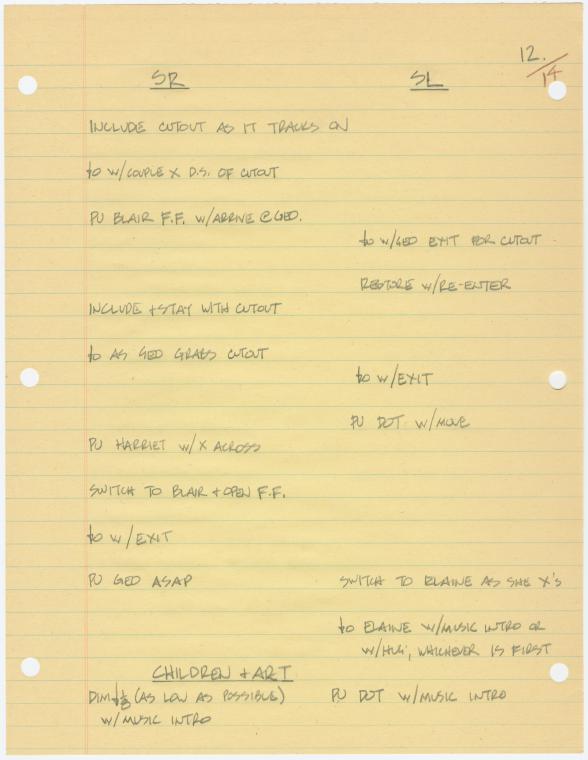 12.
/14
SR SL
INCLUDE CUTOUT AS IT TRACKS ON
↓o w/COUPLE X D.S. OF CUTOUT
PU BLAIR F.F. w/ARRIVE @ GEO.
↓o w/GEO EXIT FOR CUTOUT
RESTORE w/RE-ENTER
INCLUDE + STAY WITH CUTOUT
↓o AS GEO GRABS CUTOUT
↓o w/EXIT
PU DOT w/MOVE
PU HARRIET w/X ACROSS
SWITCH TO BLAIR + OPEN F.F.
↓o w/EXIT
PU GEO ASAP SWITCH TO ELAINE AS SHE X'S
↓o ELAINE w/MUSIC INTRO OR
w/HUG, WHICHEVER IS FIRST
CHILDREN + ART
DIM (AS LOW AS POSSIBLE) PU DOT w/MUSIC INTRO
w/MUSIC INTRO